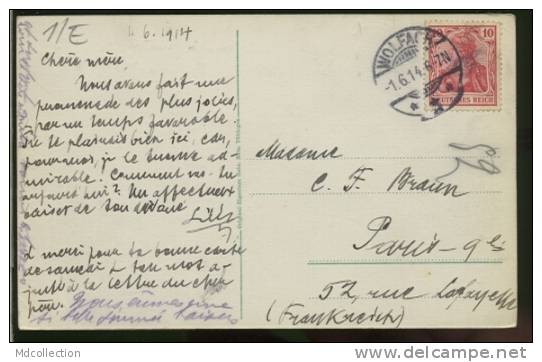 1/E
1.6.1914
Chère mère.
Nous avons fait une
promenade des plus jolies,
par un temps favorable.
te plairais bien ici, car,
pour moi, je le trouve ad-
mirable. Comment vas-tu
aujourd'hui? Un affectueux
baiser de ton
Lily
merci pour ta bonne carte
de samedi & ton mot a-
jouté à la lettre du cher
père.
WOLFACH
-1.6.14.6-7N
10
DEUTSCHES REICH
Madame
C. F. Braun
Paris-9e
52, rue Lafayette
(Frankreich)
Mdcollection
http://www.delcampe.net